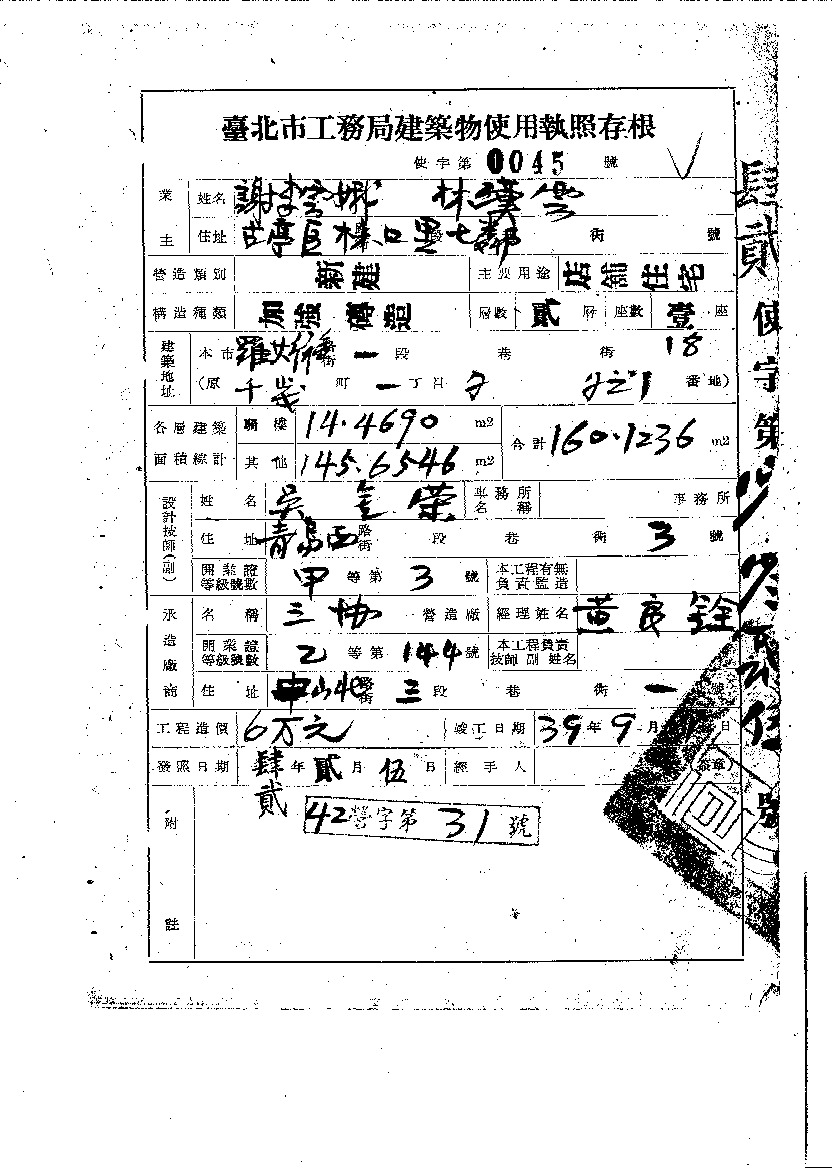 臺北市工務局建築物使用執照存根
使字第 0045 號
業主 姓名 謝李雲娥 林漢
住址 古亭區 口里七鄰 段 街 號
營造類別 新建 主要用途 店舖住宅
構造種類 加強磚造 層數 貳 層 座數 壹 座
建築地址 本市 羅斯福路街 一 段 巷 街 18
(原 千歲 町 一 丁目 2 2之1 番地)
各層建築面積總計 騎樓 14.4690 m2 合計 160.1236 m2
其他 145.6546 m2
設計技師(副) 姓名 吳金榮 事務所名稱 事務所
住址 青島西路街 段 巷 街 3 號
開業證等級號數 甲 等第 3 號 本工程有無負責監造
承造廠商 名稱 三協 營造廠 經理姓名 黃良銓
開業證等級號數 乙 等第 144 號 本工程負責技師副姓名
住址 中山北路街 三 段 巷 街 一 號
工程造價 6万元 竣工日期 39年9月 日
發照日期 肆貳年貳月伍日 經手人 簽章
附註
42營字第 31 號
肆貳使字第 號